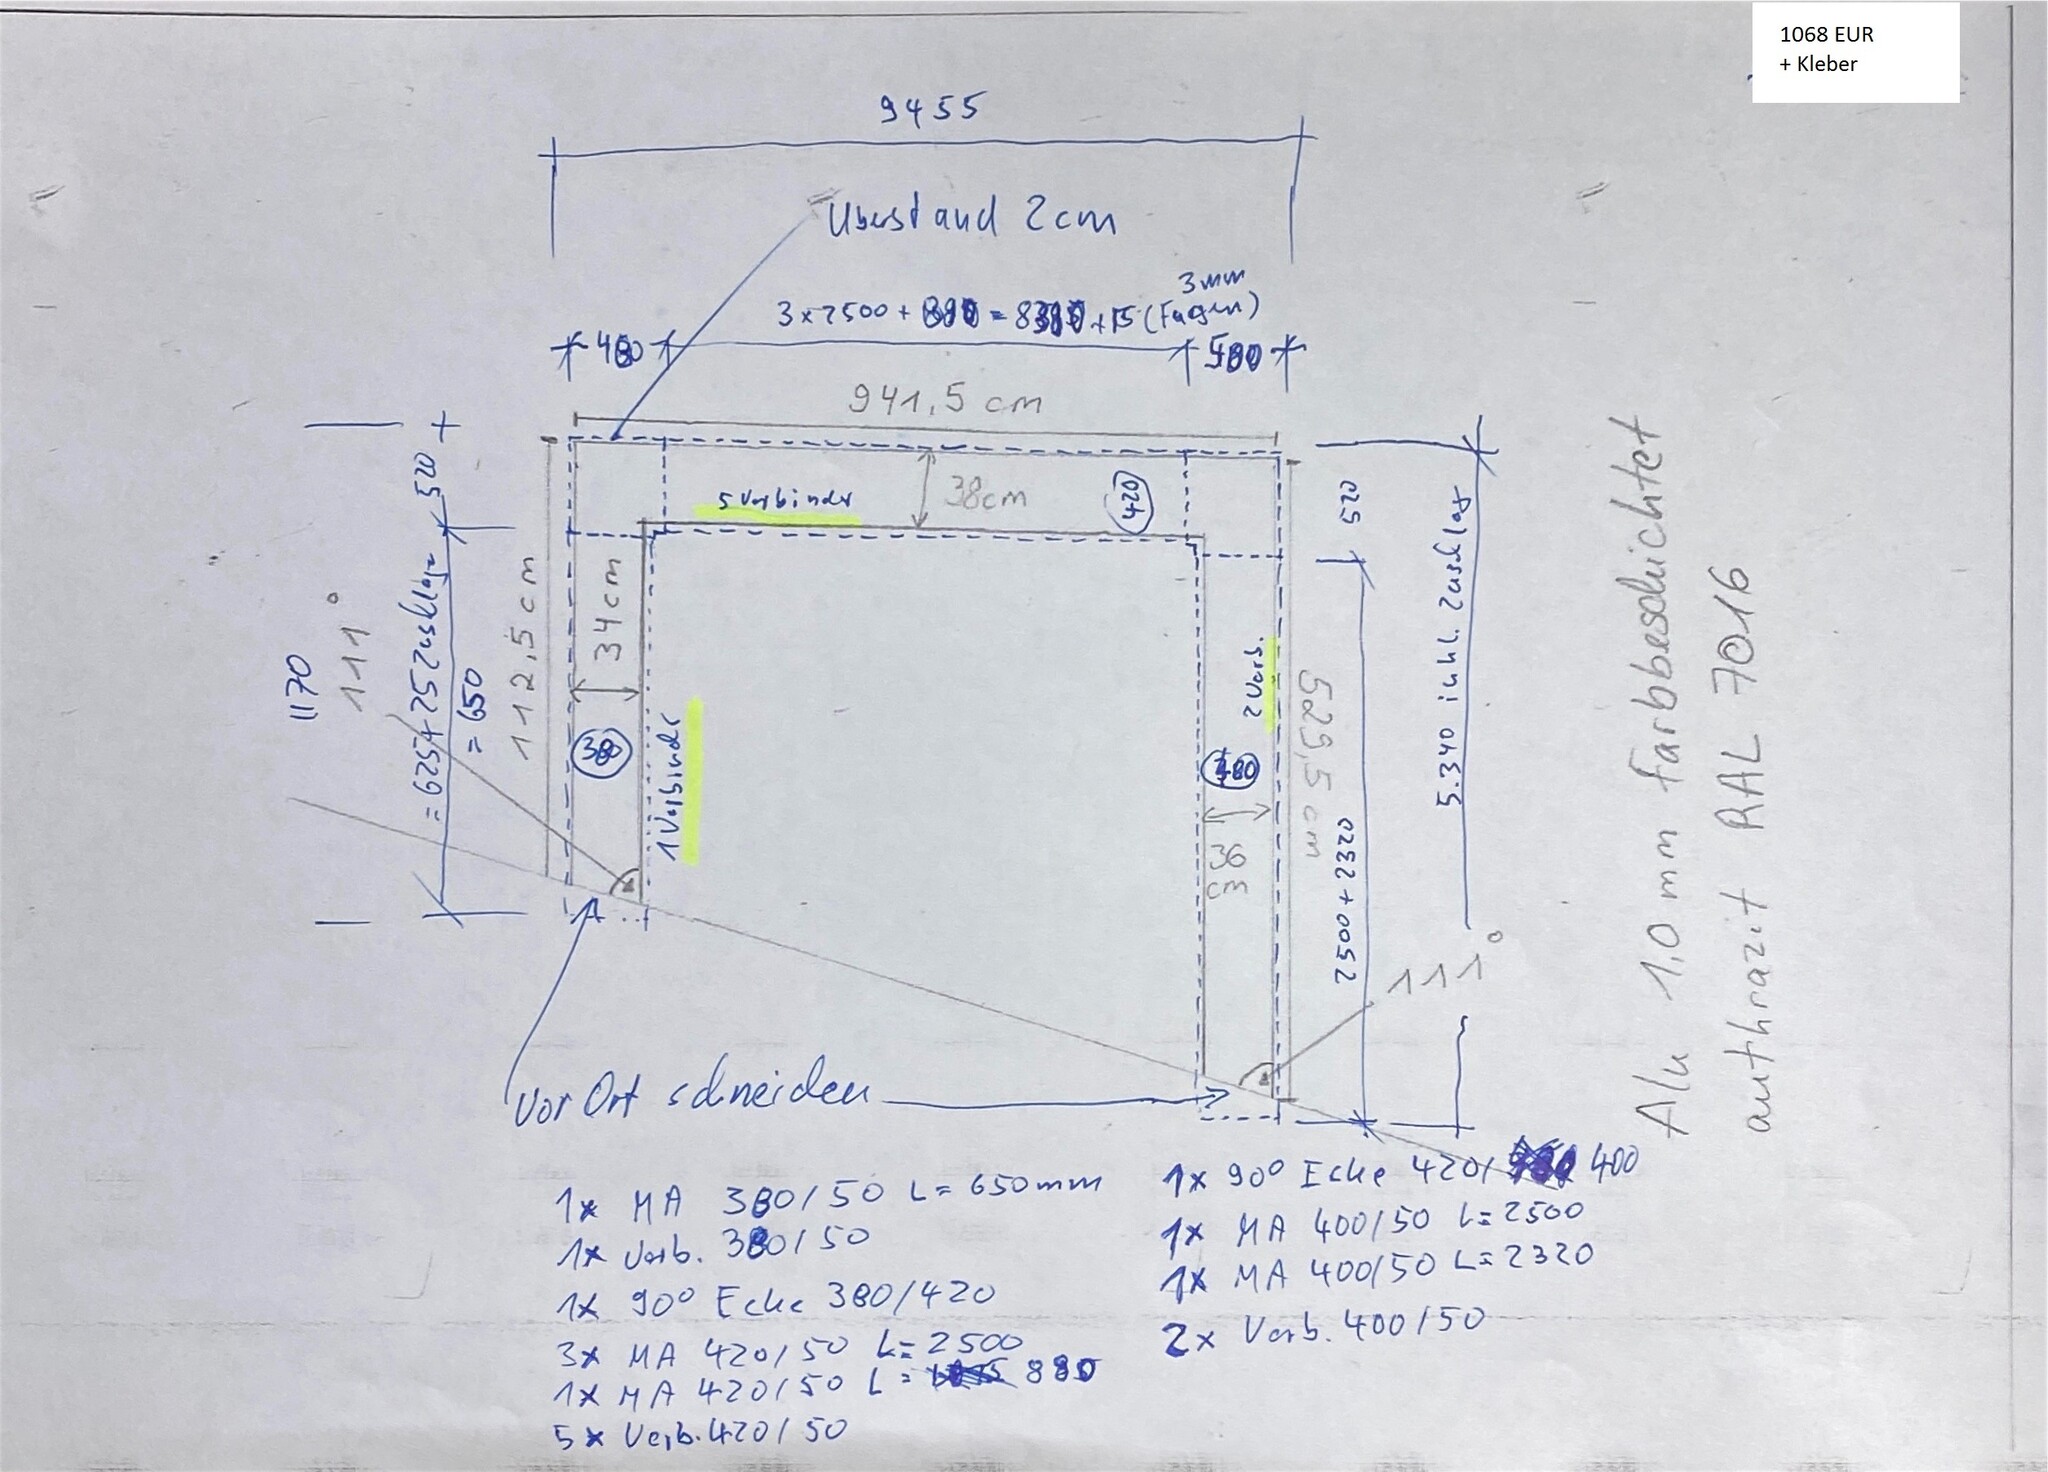 1068 EUR
+ Kleber
9455
Überstand 2cm
3mm
3 x 2500 + = + 15 (Fugen)
480
941,5 cm
5 Verbinder
38cm
420
520
112,5 cm
34cm
1170
111°
= 625 + 25 Zuschlag
= 650
380
1 Verbinder
520
5.340 inkl. Zuschlag
2 Verb.
529,5 cm
36
cm
2500 + 2320
111°
Alu 1,0 mm farbbeschichtet
anthrazit RAL 7016
Vor Ort schneiden
1x MA 380/50 L= 650mm
1x Verb. 380/50
1x 90° Ecke 380/420
3x MA 420/50 L= 2500
1x MA 420/50 L= 880
5x Verb. 420/50
1x 90° Ecke 420/ 400
1x MA 400/50 L= 2500
1x MA 400/50 L= 2320
2x Verb. 400/50